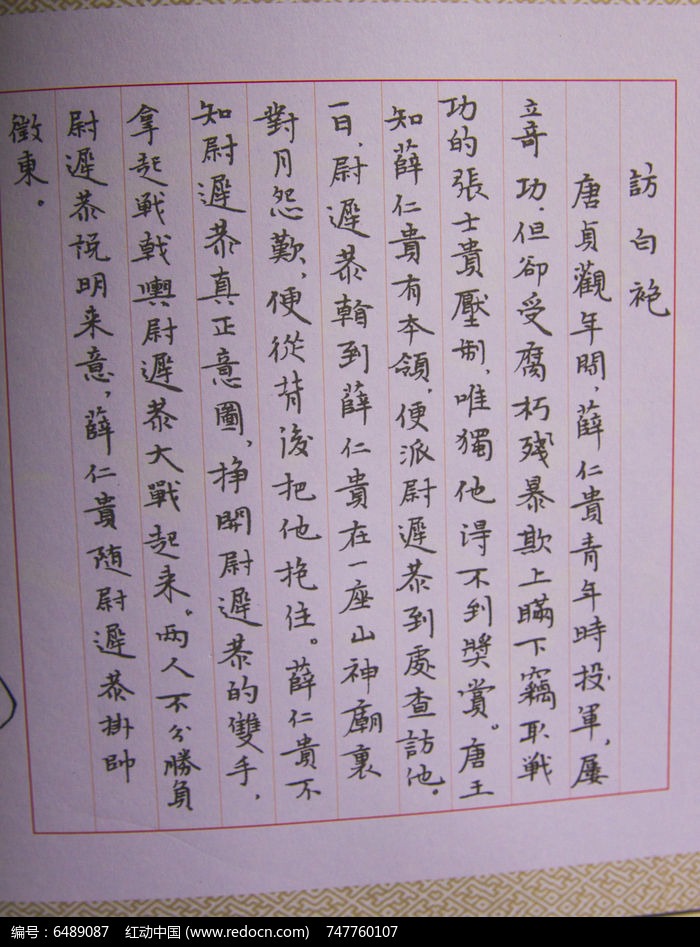 訪白袍
唐貞觀年間，薛仁貴青年時投軍，屢
立奇功．但卻受腐朽殘暴欺上瞞下竊取戰
功的張士貴壓制，唯獨他得不到獎賞。唐王
知薛仁貴有本領，便派尉遲恭到處查訪他。
一日，尉遲恭翰到薛仁貴在一座山神廟裏
對月怨歎，便從背後把他抱住。薛仁貴不
知尉遲恭真正意圖，掙開尉遲恭的雙手，
拿起戰戟與尉遲恭大戰起来。两人不分勝負
尉遲恭说明来意，薛仁貴随尉遲恭掛帥
徵東。
编号：6489087 红动中国 (www.redocn.com) 747760107